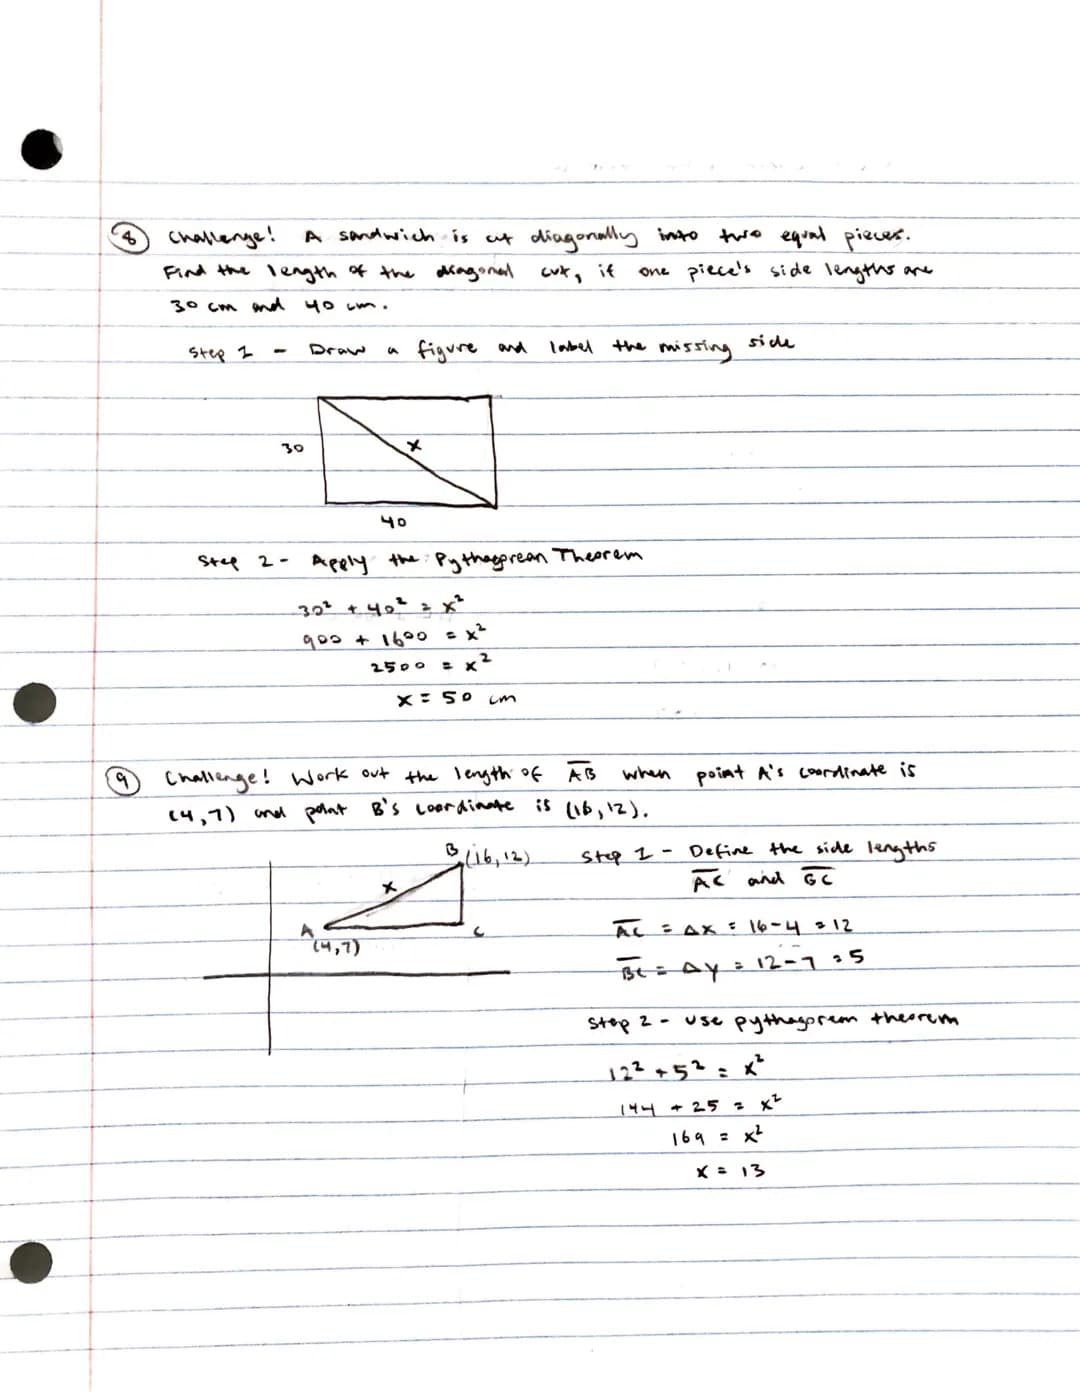 8 Challenge! A sandwich is cut diagonally into two equal pieces.
Find the length of the diagonal cut, if one piece's side lengths are
30 cm and 40 cm.
Step 1 - Draw a figure and label the missing side
30
x
40
Step 2 - Apply the Pythagorean Theorem
30² + 40² = x²
900 + 1600 = x²
2500 = x²
x = 50 cm
9 Challenge! Work out the length of A̅B̅ when point A's coordinate is
(4,7) and point B's coordinate is (16,12).
B (16,12)
x
A
(4,7)
C
Step 1 - Define the side lengths
A̅C̅ and B̅C̅
A̅C̅ = Δx = 16-4 = 12
B̅C̅ = Δy = 12-7 = 5
Step 2 - use pythagorean theorem
12² + 5² = x²
144 + 25 = x²
169 = x²
x = 13